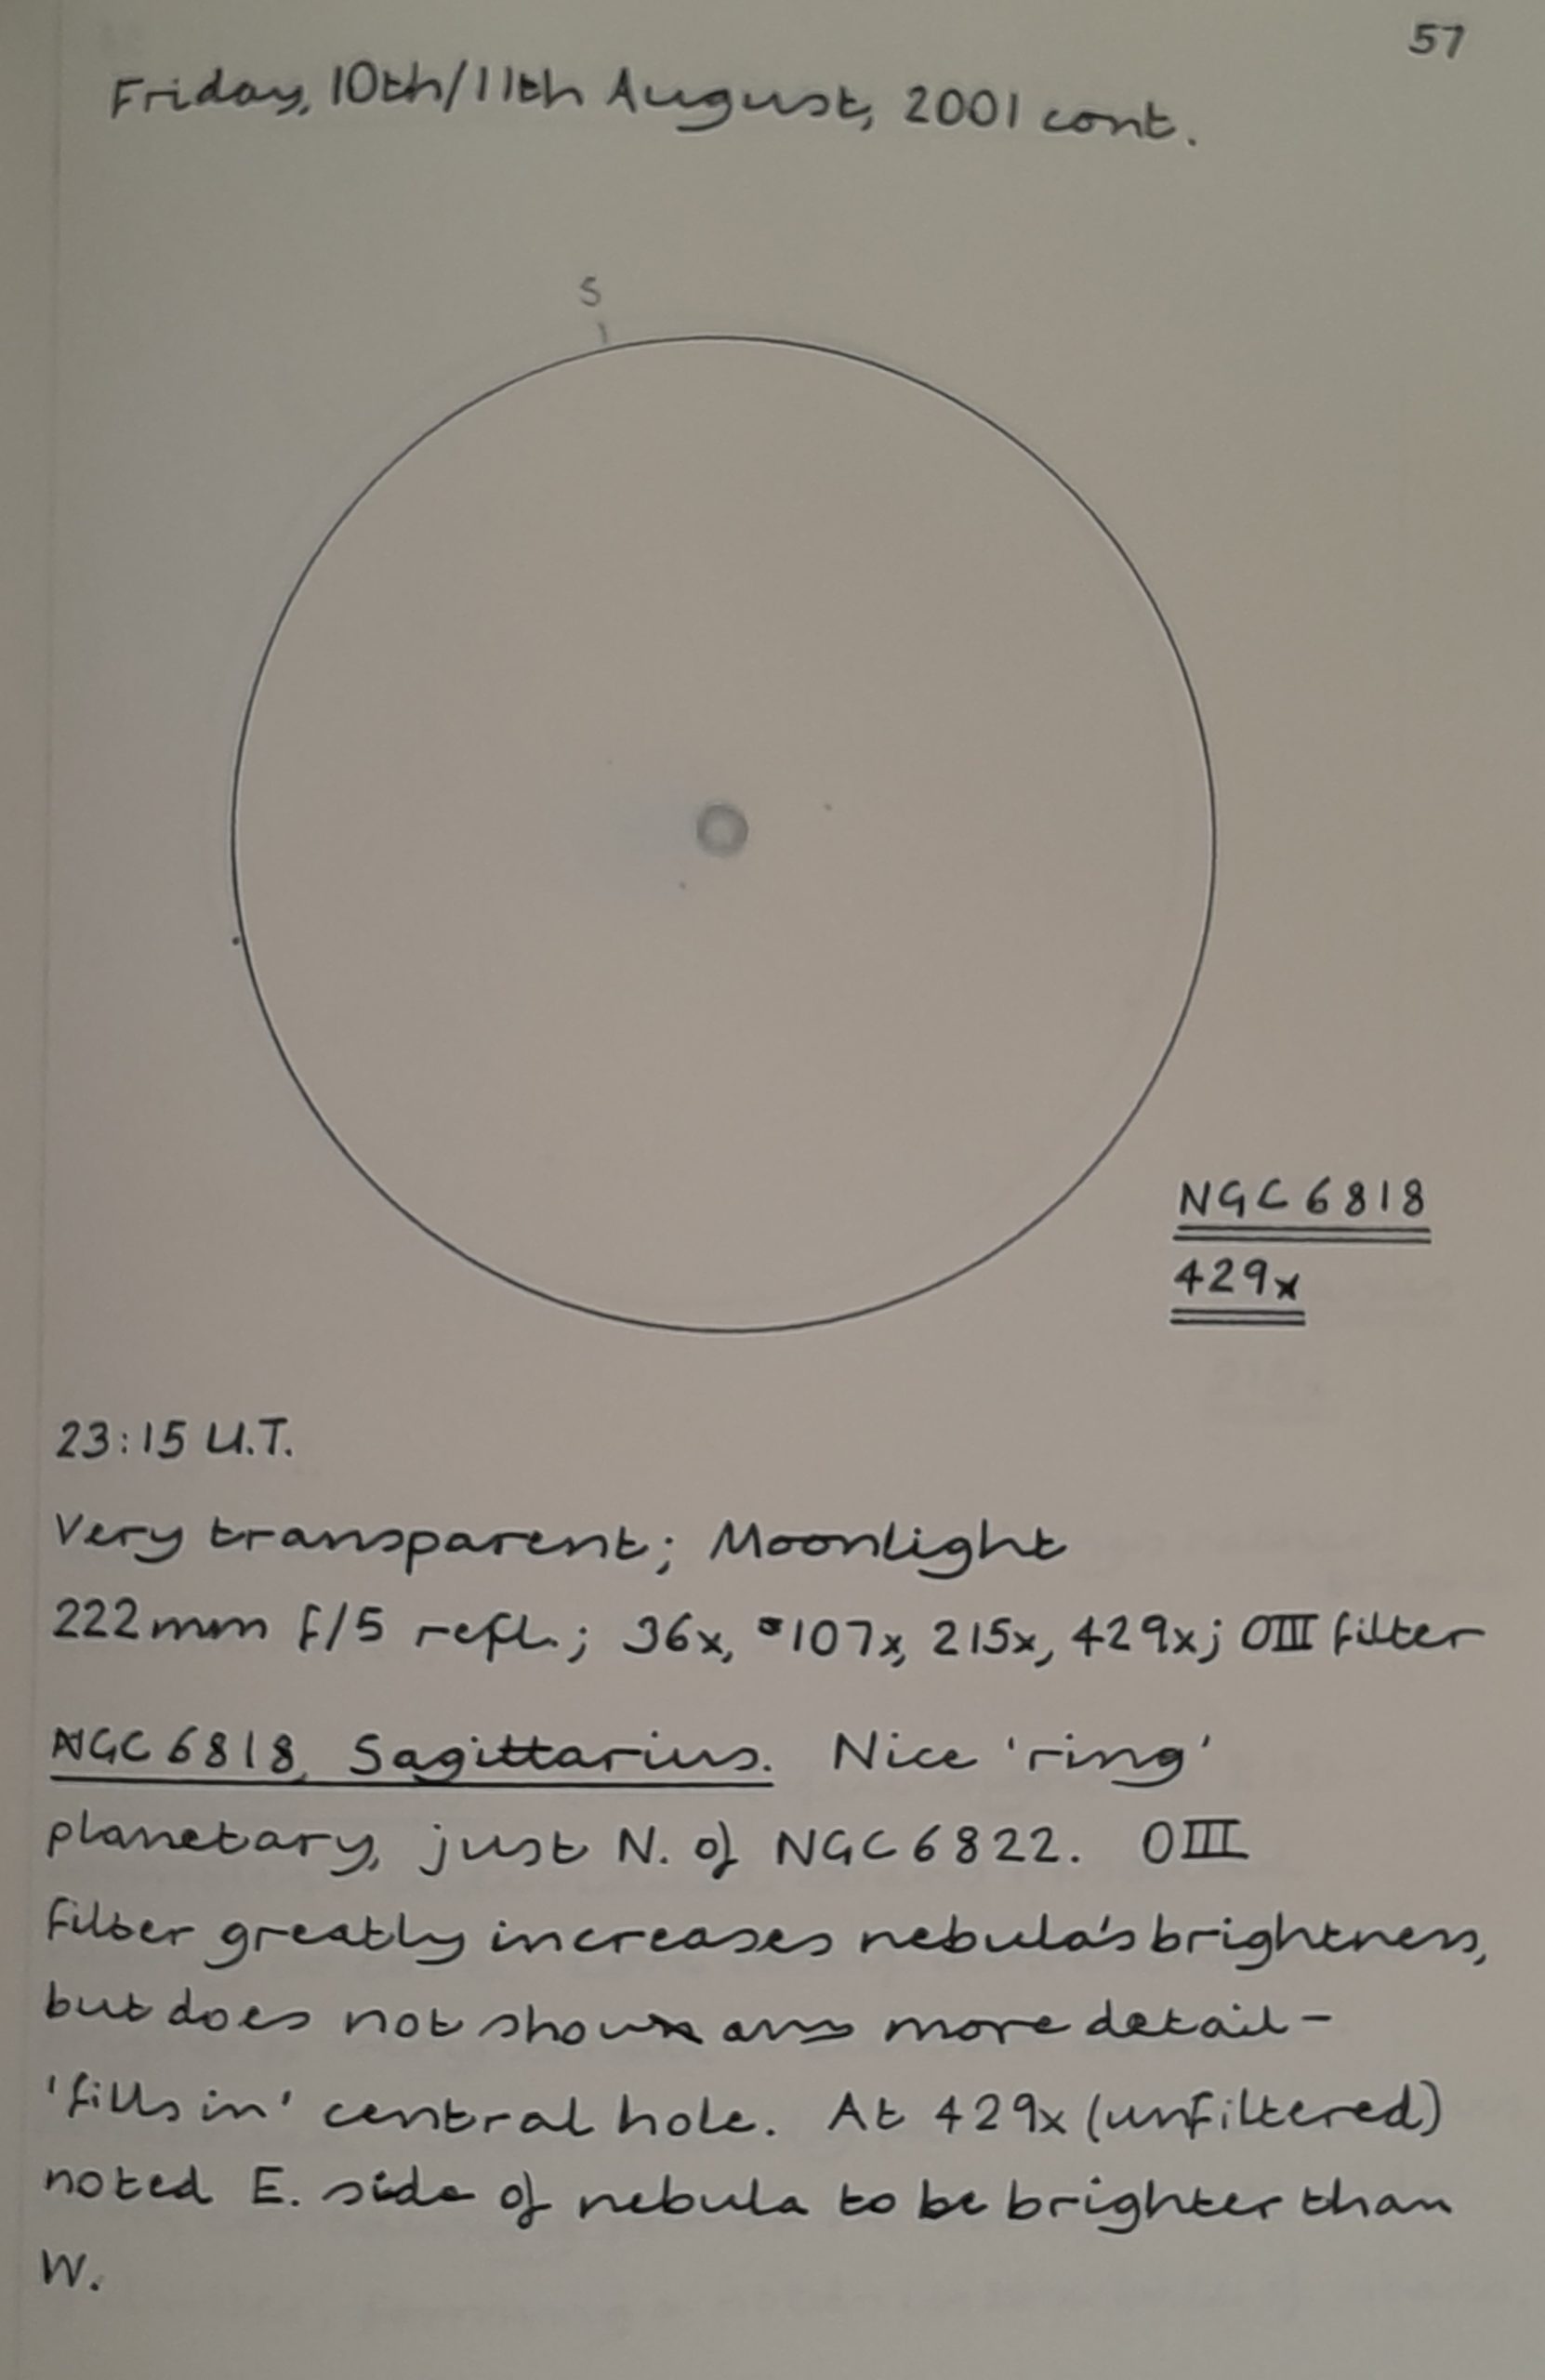 57
Friday, 10th/11th August, 2001 cont.
S
NGC 6818
429x
23:15 U.T.
Very transparent; Moonlight
222mm f/5 refl.; 36x, 107x, 215x, 429x; OIII filter
NGC 6818, Sagittarius. Nice 'ring'
planetary, just N. of NGC 6822. OIII
filter greatly increases nebula's brightness,
but does not show any more detail -
'fills in' central hole. At 429x (unfiltered)
noted E. side of nebula to be brighter than
W.